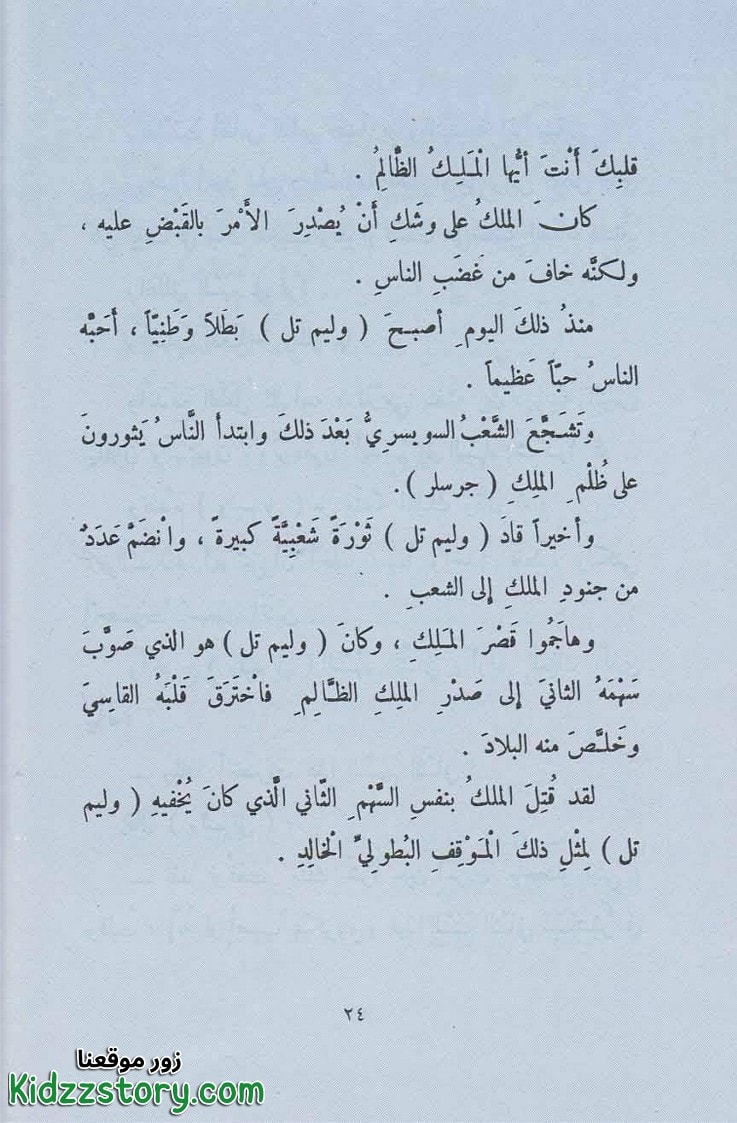 قلبِكَ أَنْتَ أيُّها الْمَلِكُ الظَّالِمُ .
كانَ الملكُ على وشَكِ أَنْ يُصْدِرَ الأَمْرَ بالقَبْضِ عليه ،
ولكنَّه خافَ من غَضَبِ الناسِ .
منذُ ذلكَ اليومِ أصبحَ ( وليم تل ) بَطَلاً وَطَنِيّاً ، أَحَبَّه
الناسُ حبّاً عَظيماً .
وتَشَجَّعَ الشَّعْبُ السويسريُّ بَعْدَ ذلكَ وابتدأ النَّاسُ يَثورونَ
على ظُلْمِ الملِكِ ( جرسلر ) .
وأخيراً قادَ ( وليم تل ) ثَوْرَةً شَعْبِيَّةً كبيرةً ، وانْضَمَّ عَدَدٌ
من جنودِ الملكِ إلى الشعبِ .
وهاجَمُوا قَصْرَ المَلِكِ ، وكانَ ( وليم تل ) هو الذي صَوَّبَ
سَهْمَهُ الثانيَ إلى صَدْرِ الملِكِ الظَّالِمِ فاخْتَرَقَ قَلْبَهُ القاسِيَ
وخَلَّصَ منه البلادَ .
لقد قُتِلَ الملكُ بنفسِ السَّهْمِ الثّاني الَّذي كانَ يُخْفيهِ ( وليم
تل ) لِمْثلِ ذلكَ الْمَوْقِفِ البُطوليِّ الْخالِدِ .
٢٤
زور موقعنا
Kidzzstory.com